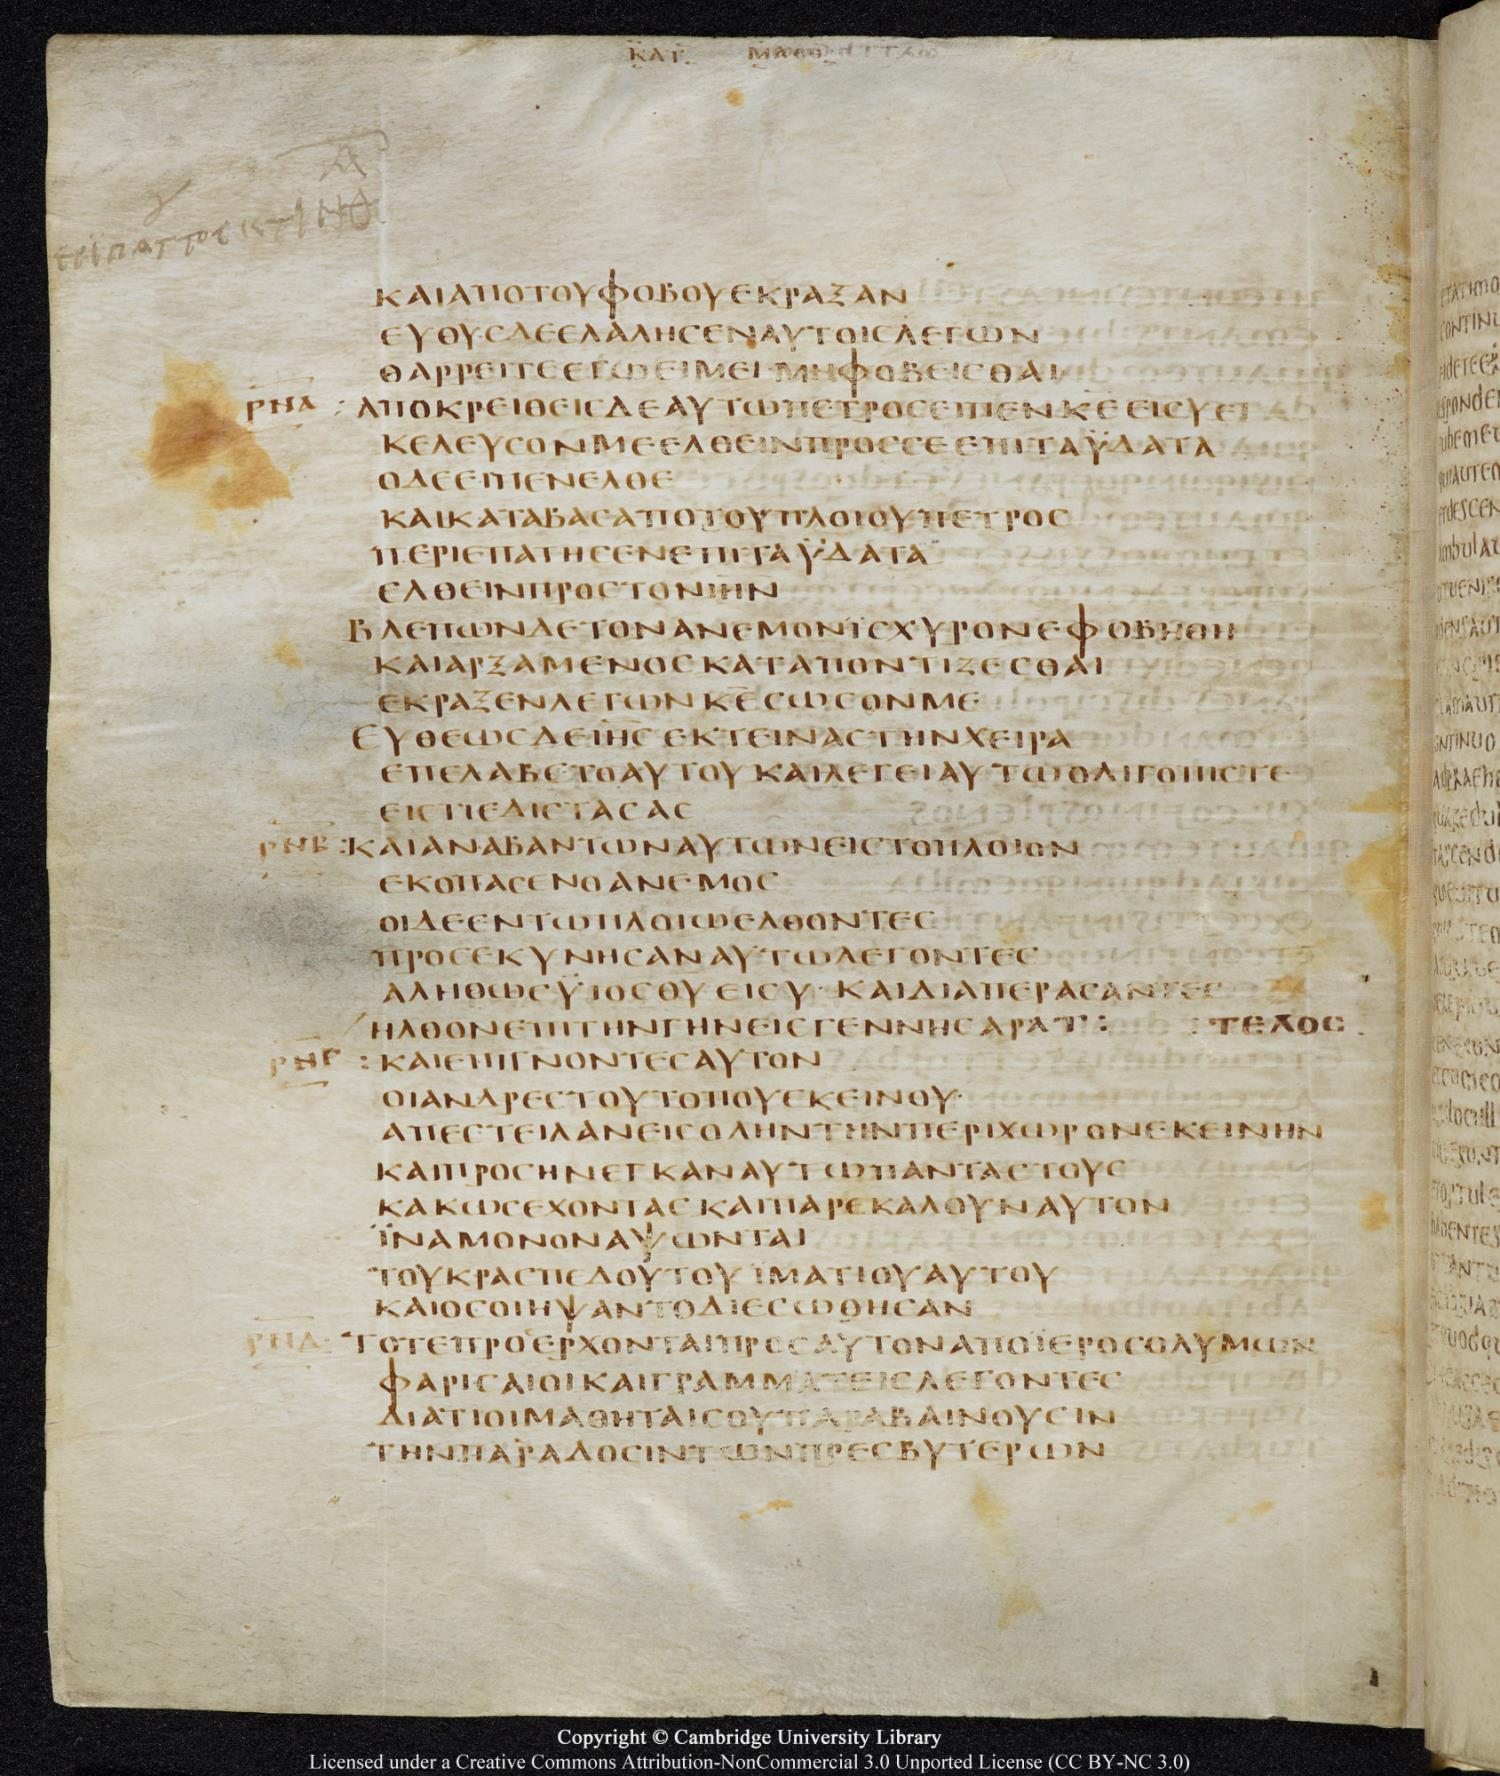 ΚΑΤ ΜΑΘΘ
ΚΑΙΑΠΟΤΟΥΦΟΒΟΥΕΚΡΑΞΑΝ
ΕΥΘΥΣΔΕΕΛΑΛΗΣΕΝΑΥΤΟΙΣΛΕΓΩΝ
ΘΑΡΡΕΙΤΕΕΓΩΕΙΜΕΙ·ΜΗΦΟΒΕΙΣΘΑΙ
ΡΝΑ : ΑΠΟΚΡΕΙΘΕΙΣΔΕΑΥΤΩΠΕΤΡΟΣΕΙΠΕΝΚΕΕΙΣΥΕΙ
ΚΕΛΕΥΣΟΝΜΕΕΛΘΕΙΝΠΡΟΣΣΕΕΠΙΤΑΫΔΑΤΑ
ΟΔΕΕΙΠΕΝΕΛΘΕ
ΚΑΙΚΑΤΑΒΑΣΑΠΟΤΟΥΠΛΟΙΟΥΠΕΤΡΟΣ
ΠΕΡΙΕΠΑΤΗΣΕΝΕΠΙΤΑΫΔΑΤΑ
ΕΛΘΕΙΝΠΡΟΣΤΟΝΙΗΝ
ΒΛΕΠΩΝΔΕΤΟΝΑΝΕΜΟΝΪΣΧΥΡΟΝΕΦΟΒΗΘΗ
ΚΑΙΑΡΞΑΜΕΝΟΣΚΑΤΑΠΟΝΤΙΖΕΣΘΑΙ
ΕΚΡΑΞΕΝΛΕΓΩΝΚΕΣΩΣΟΝΜΕ
ΕΥΘΕΩΣΔΕΙΗΣΕΚΤΕΙΝΑΣΤΗΝΧΕΙΡΑ
ΕΠΕΛΑΒΕΤΟΑΥΤΟΥΚΑΙΛΕΓΕΙΑΥΤΩΟΛΙΓΟΠΙΣΤΕ
ΕΙΣΤΙΕΔΙΣΤΑΣΑΣ
ΡΝΒ :ΚΑΙΑΝΑΒΑΝΤΩΝΑΥΤΩΝΕΙΣΤΟΠΛΟΙΟΝ
ΕΚΟΠΑΣΕΝΟΑΝΕΜΟΣ
ΟΙΔΕΕΝΤΩΠΛΟΙΩΕΛΘΟΝΤΕΣ
ΠΡΟΣΕΚΥΝΗΣΑΝΑΥΤΩΛΕΓΟΝΤΕΣ
ΑΛΗΘΩΣΫΙΟΣΘΥΕΙΣΥ· ΚΑΙΔΙΑΠΕΡΑΣΑΝΤΕΣ
ΗΛΘΟΝΕΠΙΤΗΝΓΗΝΕΙΣΓΕΝΝΗΣΑΡΑΤ: :ΤΕΛΟΣ
ΡΝΓ :ΚΑΙΕΠΙΓΝΟΝΤΕΣΑΥΤΟΝ
ΟΙΑΝΔΡΕΣΤΟΥΤΟΠΟΥΕΚΕΙΝΟΥ·
ΑΠΕΣΤΕΙΛΑΝΕΙΣΟΛΗΝΤΗΝΠΕΡΙΧΩΡΟΝΕΚΕΙΝΗΝ
ΚΑΙΠΡΟΣΗΝΕΓΚΑΝΑΥΤΩΠΑΝΤΑΣΤΟΥΣ
ΚΑΚΩΣΕΧΟΝΤΑΣΚΑΙΠΑΡΕΚΑΛΟΥΝΑΥΤΟΝ
ΪΝΑΜΟΝΟΝΑΨΩΝΤΑΙ
ΤΟΥΚΡΑΣΠΕΔΟΥΤΟΥΪΜΑΤΙΟΥΑΥΤΟΥ
ΚΑΙΟΣΟΙΗΨΑΝΤΟΔΙΕΣΩΘΗΣΑΝ
ΡΝΔ: ΤΟΤΕΠΡΟΣΕΡΧΟΝΤΑΙΠΡΟΣΑΥΤΟΝΑΠΟΪΕΡΟΣΟΛΥΜΩΝ
ΦΑΡΙΣΑΙΟΙΚΑΙΓΡΑΜΜΑΤΕΙΣΛΕΓΟΝΤΕΣ
ΔΙΑΤΙΟΙΜΑΘΗΤΑΙΣΟΥΠΑΡΑΒΑΙΝΟΥΣΙΝ
ΤΗΝΠΑΡΑΔΟΣΙΝΤΩΝΠΡΕΣΒΥΤΕΡΩΝ
Copyright © Cambridge University Library
Licensed under a Creative Commons Attribution-NonCommercial 3.0 Unported License (CC BY-NC 3.0)